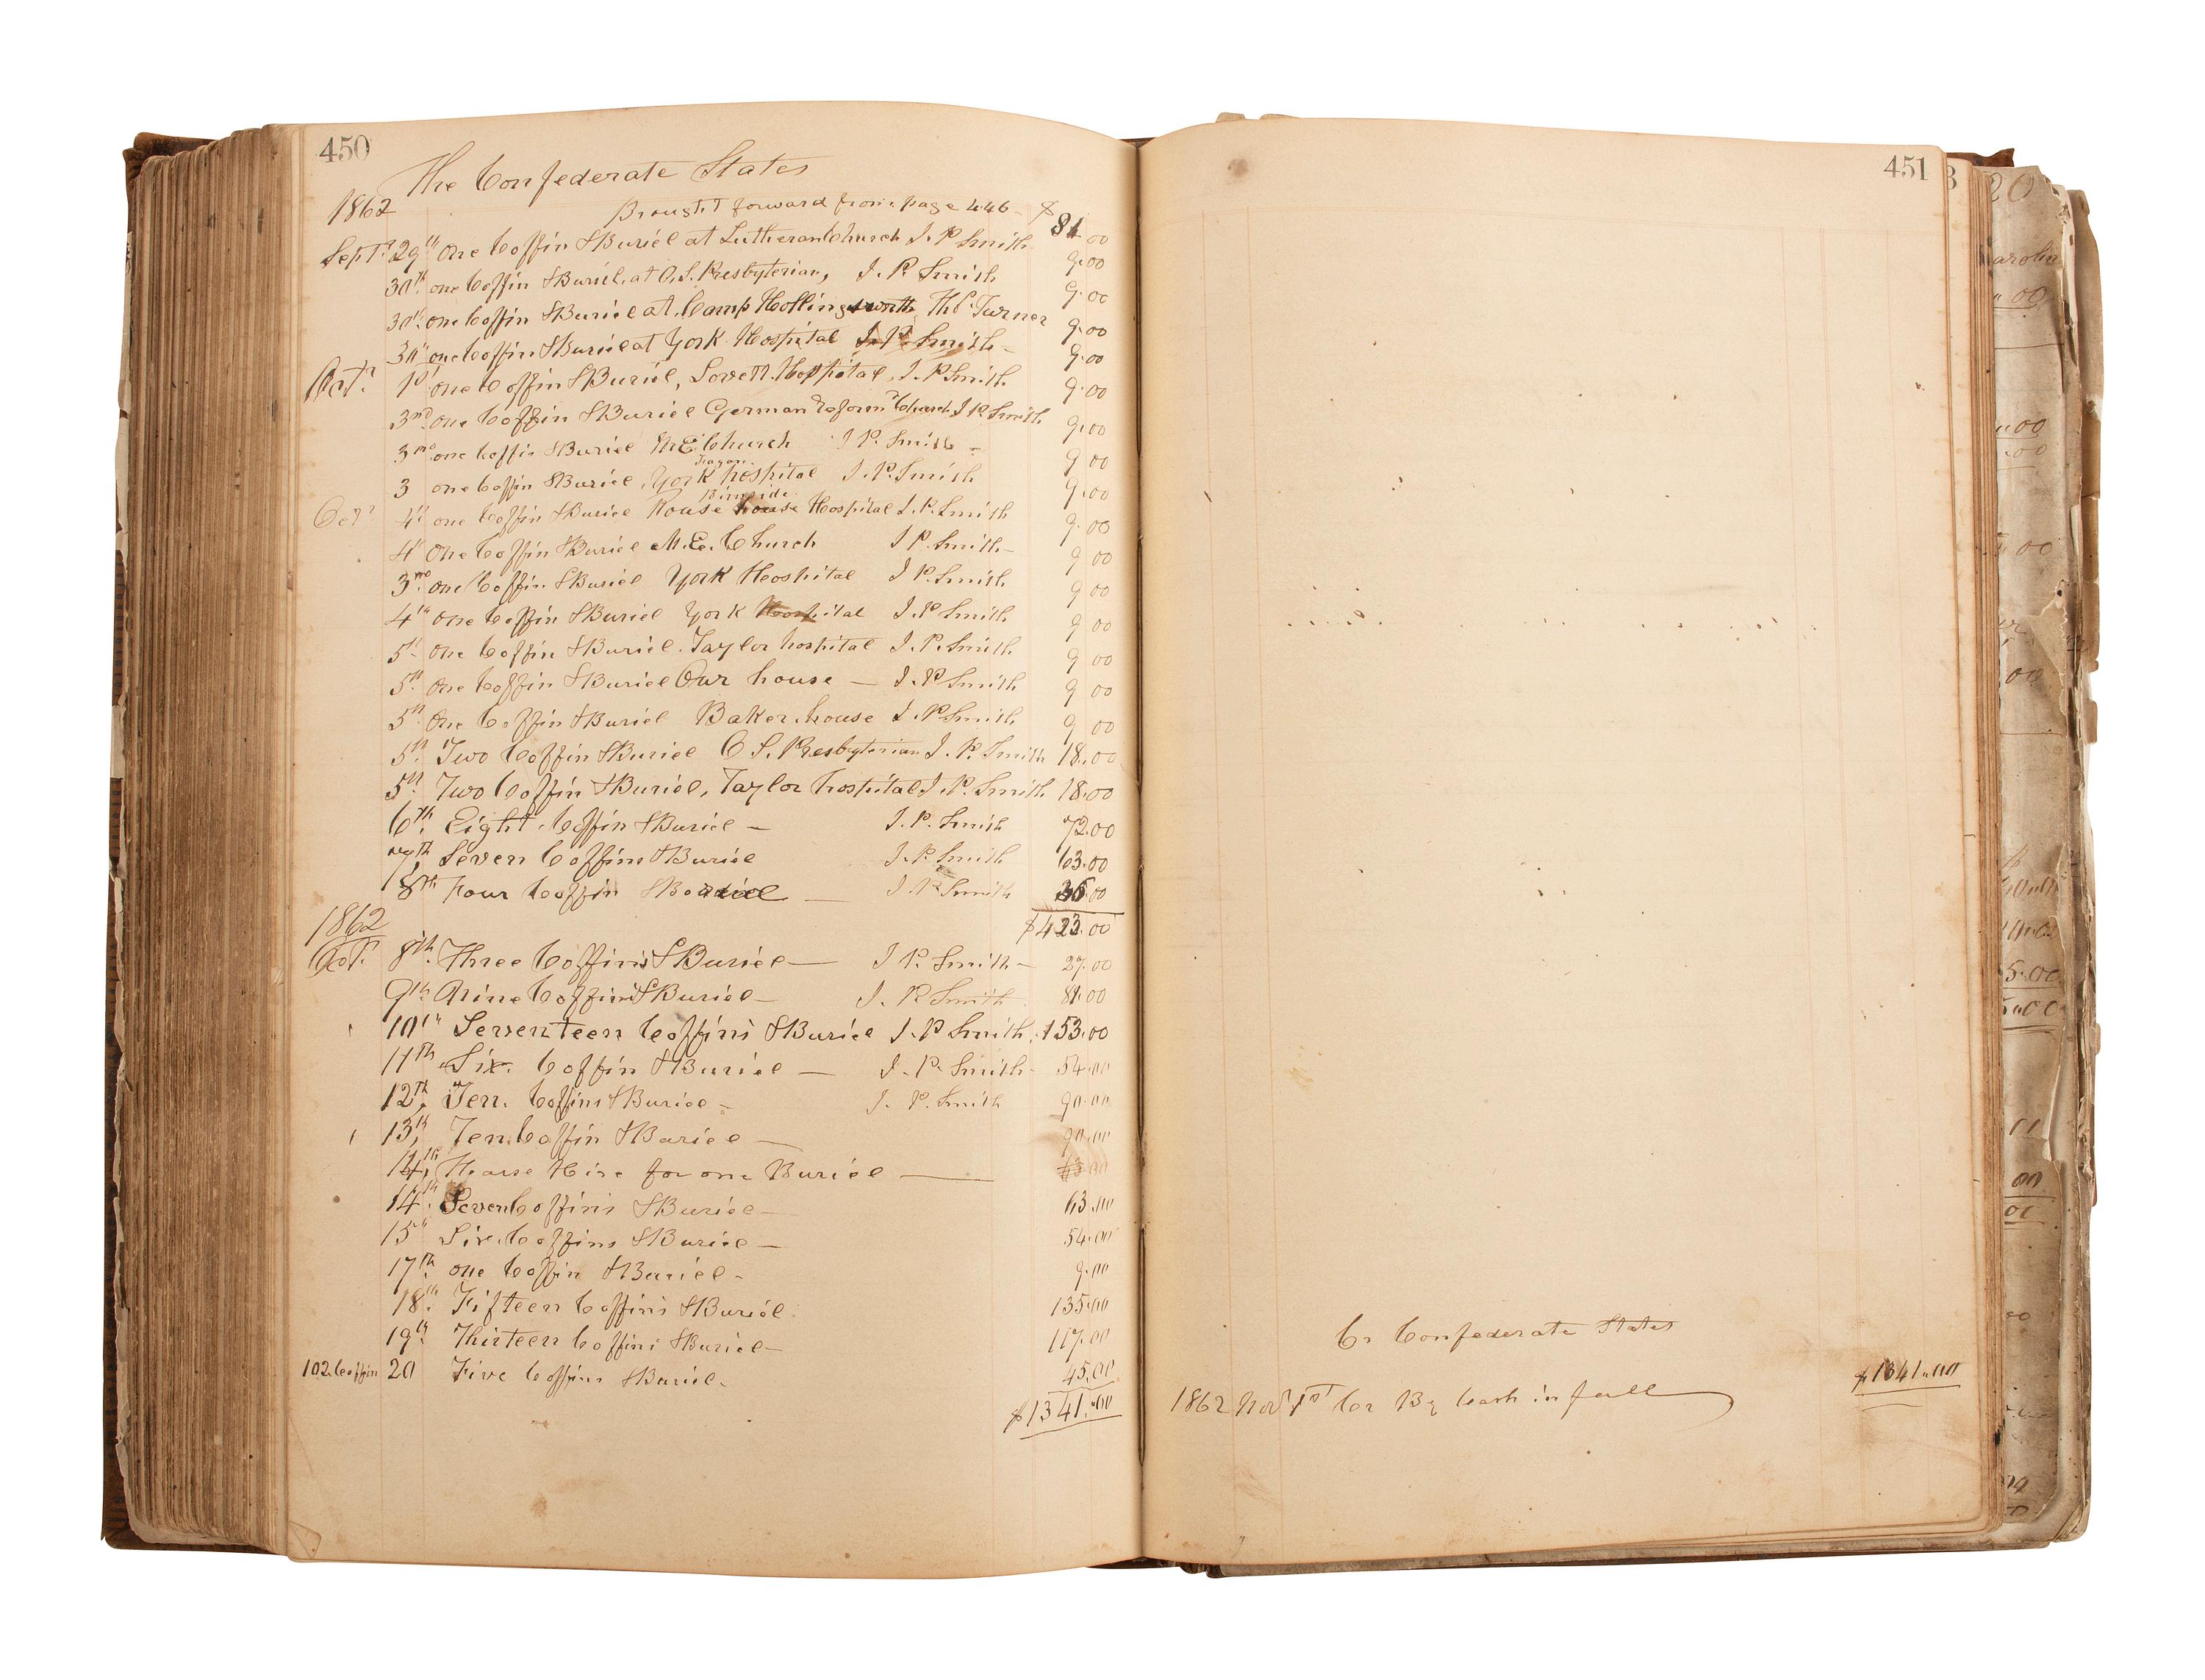 450
The Confederate States
1862
Brought forward from page 446 - $ 81.00
Sept. 29th one Coffin & Buriel at Lutheran Church J. P. Smith 9.00
30th one Coffin & Buriel at O. S. Presbyterian, J. P. Smith 9.00
30th one Coffin & Buriel at Camp Hollingsworth, Turner 9.00
30th one Coffin & Buriel at York Hospital J. P. Smith - 9.00
Oct. 1st one Coffin & Buriel, Lovett Hospital, J. P. Smith 9.00
3rd one Coffin & Buriel German Reform Church J. P. Smith 9.00
3rd one Coffin Buriel M E Church J. P. Smith - 9.00
3 one Coffin & Buriel, York hospital J. P. Smith 9.00
Oct. 4th one Coffin & Buriel House Hospital J. P. Smith 9.00
4th One Coffin & Buriel M. E. Church J. P. Smith - 9.00
3rd one Coffin & Buriel York Hospital J. P. Smith 9.00
4th one Coffin & Buriel York Hospital J. P. Smith 9.00
5th one Coffin & Buriel. Taylor hospital J. P. Smith 9.00
5th One Coffin & Buriel Our house - J. P. Smith 9.00
5th One Coffin & Buriel Baker house J. P. Smith 9.00
5th Two Coffin & Buriel O S. Presbyterian J. P. Smith 18.00
5th Two Coffin & Buriel, Taylor hospital J. P. Smith 18.00
6th, Eight Coffin & Buriel - J. P. Smith 72.00
7th, Seven Coffins & Buriel J. P. Smith 63.00
8th Four Coffin & Buriel - J. P. Smith 36.00
$423.00
1862
Oct. 8th. Three Coffins & Buriel - J. P. Smith - 27.00
9th Nine Coffins & Buriel - J. P. Smith 81.00
10th Seventeen Coffins & Buriel J. P. Smith 153.00
11th Six Coffin & Buriel - J. P. Smith - 54.00
12th, Ten Coffins & Buriel - J. P. Smith 90.00
13th, Ten Coffin & Buriel - 90.00
14th, Hearse Hire for one Buriel -
14th Seven Coffins & Buriel - 63.00
15th Six Coffins & Buriel - 54.00
17th one Coffin & Buriel - 9.00
18th Fifteen Coffins & Buriel 135.00
19th Thirteen Coffins & Buriel - 117.00
102 Coffin 20 Five Coffins & Buriel - 45.00
$1341.00
451
Cr Confederate States
1862 Nov 1st Cr By Cash in full $1341.00